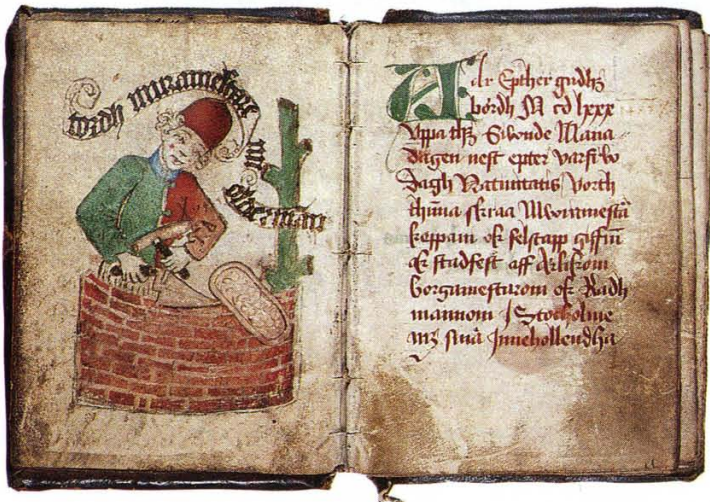 tordh muramestari
olderman
Aar Epther gudhz
bördh M cd lxxx
vppa thz Siwonde Mana
dagen nest epter varfrwo
Dagh Natiuitatis Vorth
thenna skraa Mwrmestã
keppam ok selscapp giffin
ok stadfest aff Ærlikom
borgamestarom ok Radh
mannom J Stocholme
mz swa Jnnehollendha